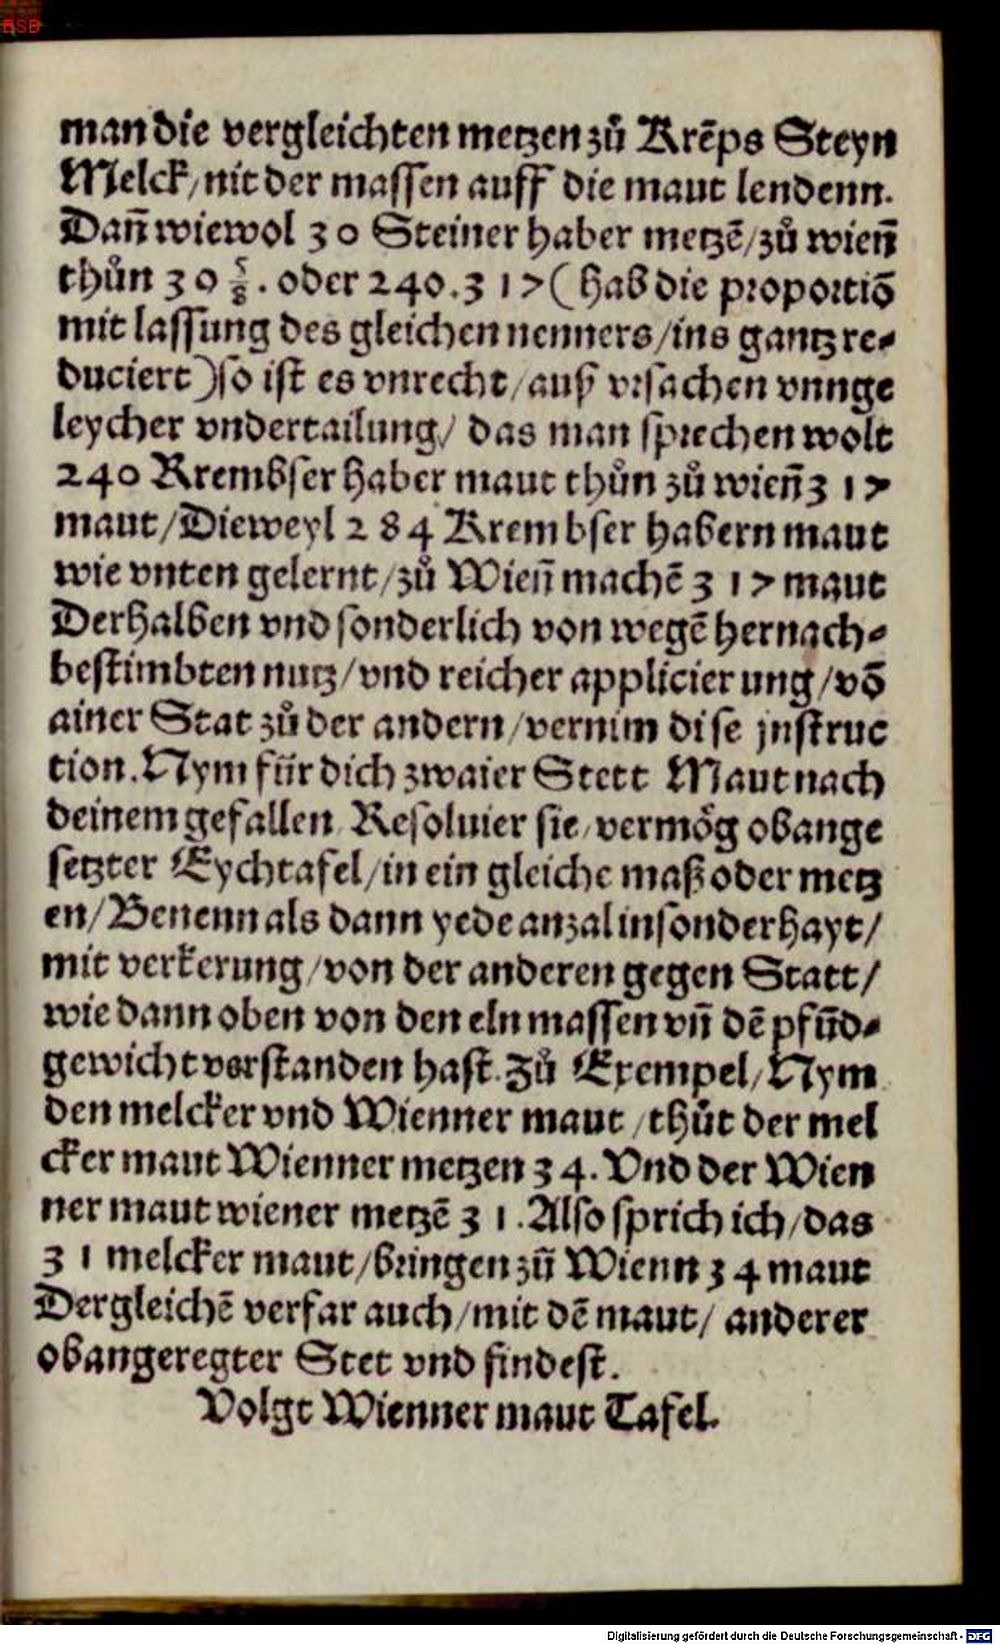 BSB
man die vergleichten metzen zů Krēps Steyn
Melck/nit der massen auff die maut lendenn.
Dañ wiewol 30 Steiner haber metzē/zů wieñ
thůn 30 5/8. oder 240.317(hab die proportiō
mit lassung des gleichen nenners/ins gantz re⸗
duciert)so ist es vnrecht/auß vrsachen vnnge
leycher vndertailung/ das man sprechen wolt
240 Krembser haber maut thůn zů wieñ 317
maut/Dieweyl 284 Krembser habern maut
wie vnten gelernt/zů Wieñ machē 317 maut
Derhalben vnd sonderlich von wegē hernach⸗
bestimbten nutz/vnd reicher applicier ung/vō
ainer Stat zů der andern/vernim dise jnstruc
tion. Nym für dich zwaier Stett Maut nach
deinem gefallen Resoluier sie/vermög obange
setzter Eychtafel/in ein gleiche maß oder metz
en/Benenn als dann yede anzal insonderhayt/
mit verkerung/von der anderen gegen Statt/
wie dann oben von den eln massen vñ dē pfūd⸗
gewicht verstanden hast. Zů Exempel/Nym
den melcker vnd Wienner maut/thůt der mel
cker maut Wienner metzen 34. Vnd der Wien
ner maut wiener metzē 31. Also sprich ich/das
31 melcker maut/bringen zů Wienn 34 maut
Dergleichē verfar auch/mit dē maut/ anderer
obangeregter Stet vnd findest.
Volgt Wienner maut Tafel.
Digitalisierung gefördert durch die Deutsche Forschungsgemeinschaft - DFG